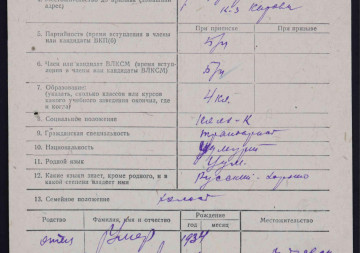 адрес)
к-з Кирова
При приписке
При призыве
5. Партийность (время вступления в члены
или кандидаты ВКП(б)
б/п
6. Член или кандидат ВЛКСМ (время всту-
пления в члены или кандидаты ВЛКСМ)
б/п
7. Образование:
(указать, сколько классов или курсов
какого учебного заведения окончил, где
и когда)
4 кл.
8. Социальное положение
колх-к
9. Гражданская специальность
тракторист
10. Национальность
удмурт
11. Родной язык
удм.
12. Какие языки знает, кроме родного, и в
какой степени владеет ими
Русский - хорошо
13. Семейное положение
холост
Родство
Фамилия, имя и отчество
Рождение
год
месяц
Местожительство
отец
Умер
1934